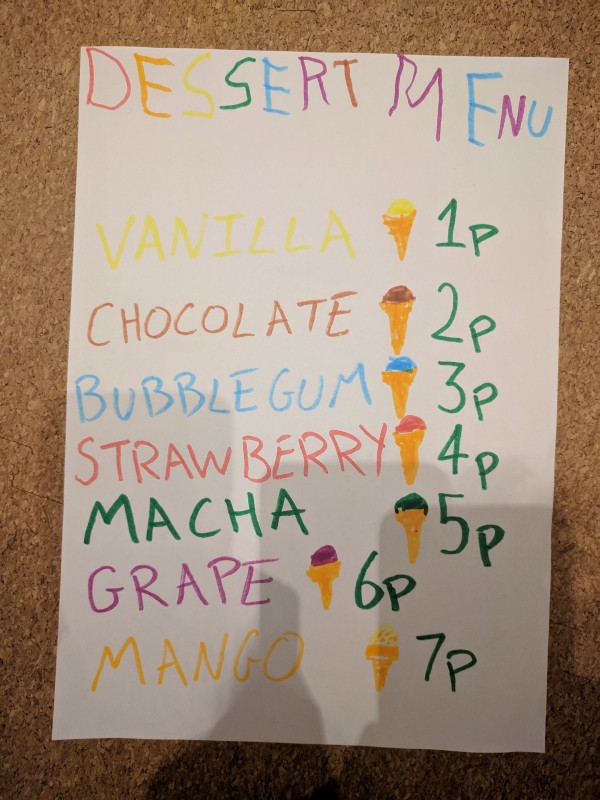 DESSERT MENU
VANILLA 1p
CHOCOLATE 2p
BUBBLEGUM 3p
STRAWBERRY 4p
MACHA 5p
GRAPE 6p
MANGO 7p